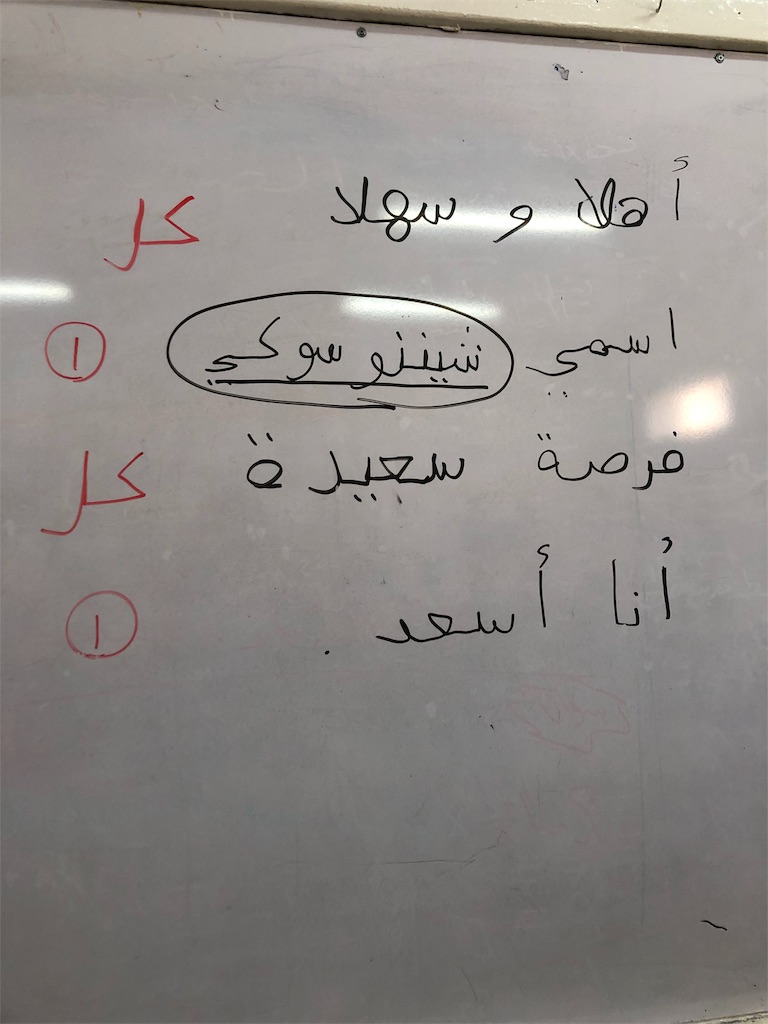 أهلا و سهلا كل
اسمي شيننوسوكي ١
فرصة سعيدة كل
أنا أسعد . ١